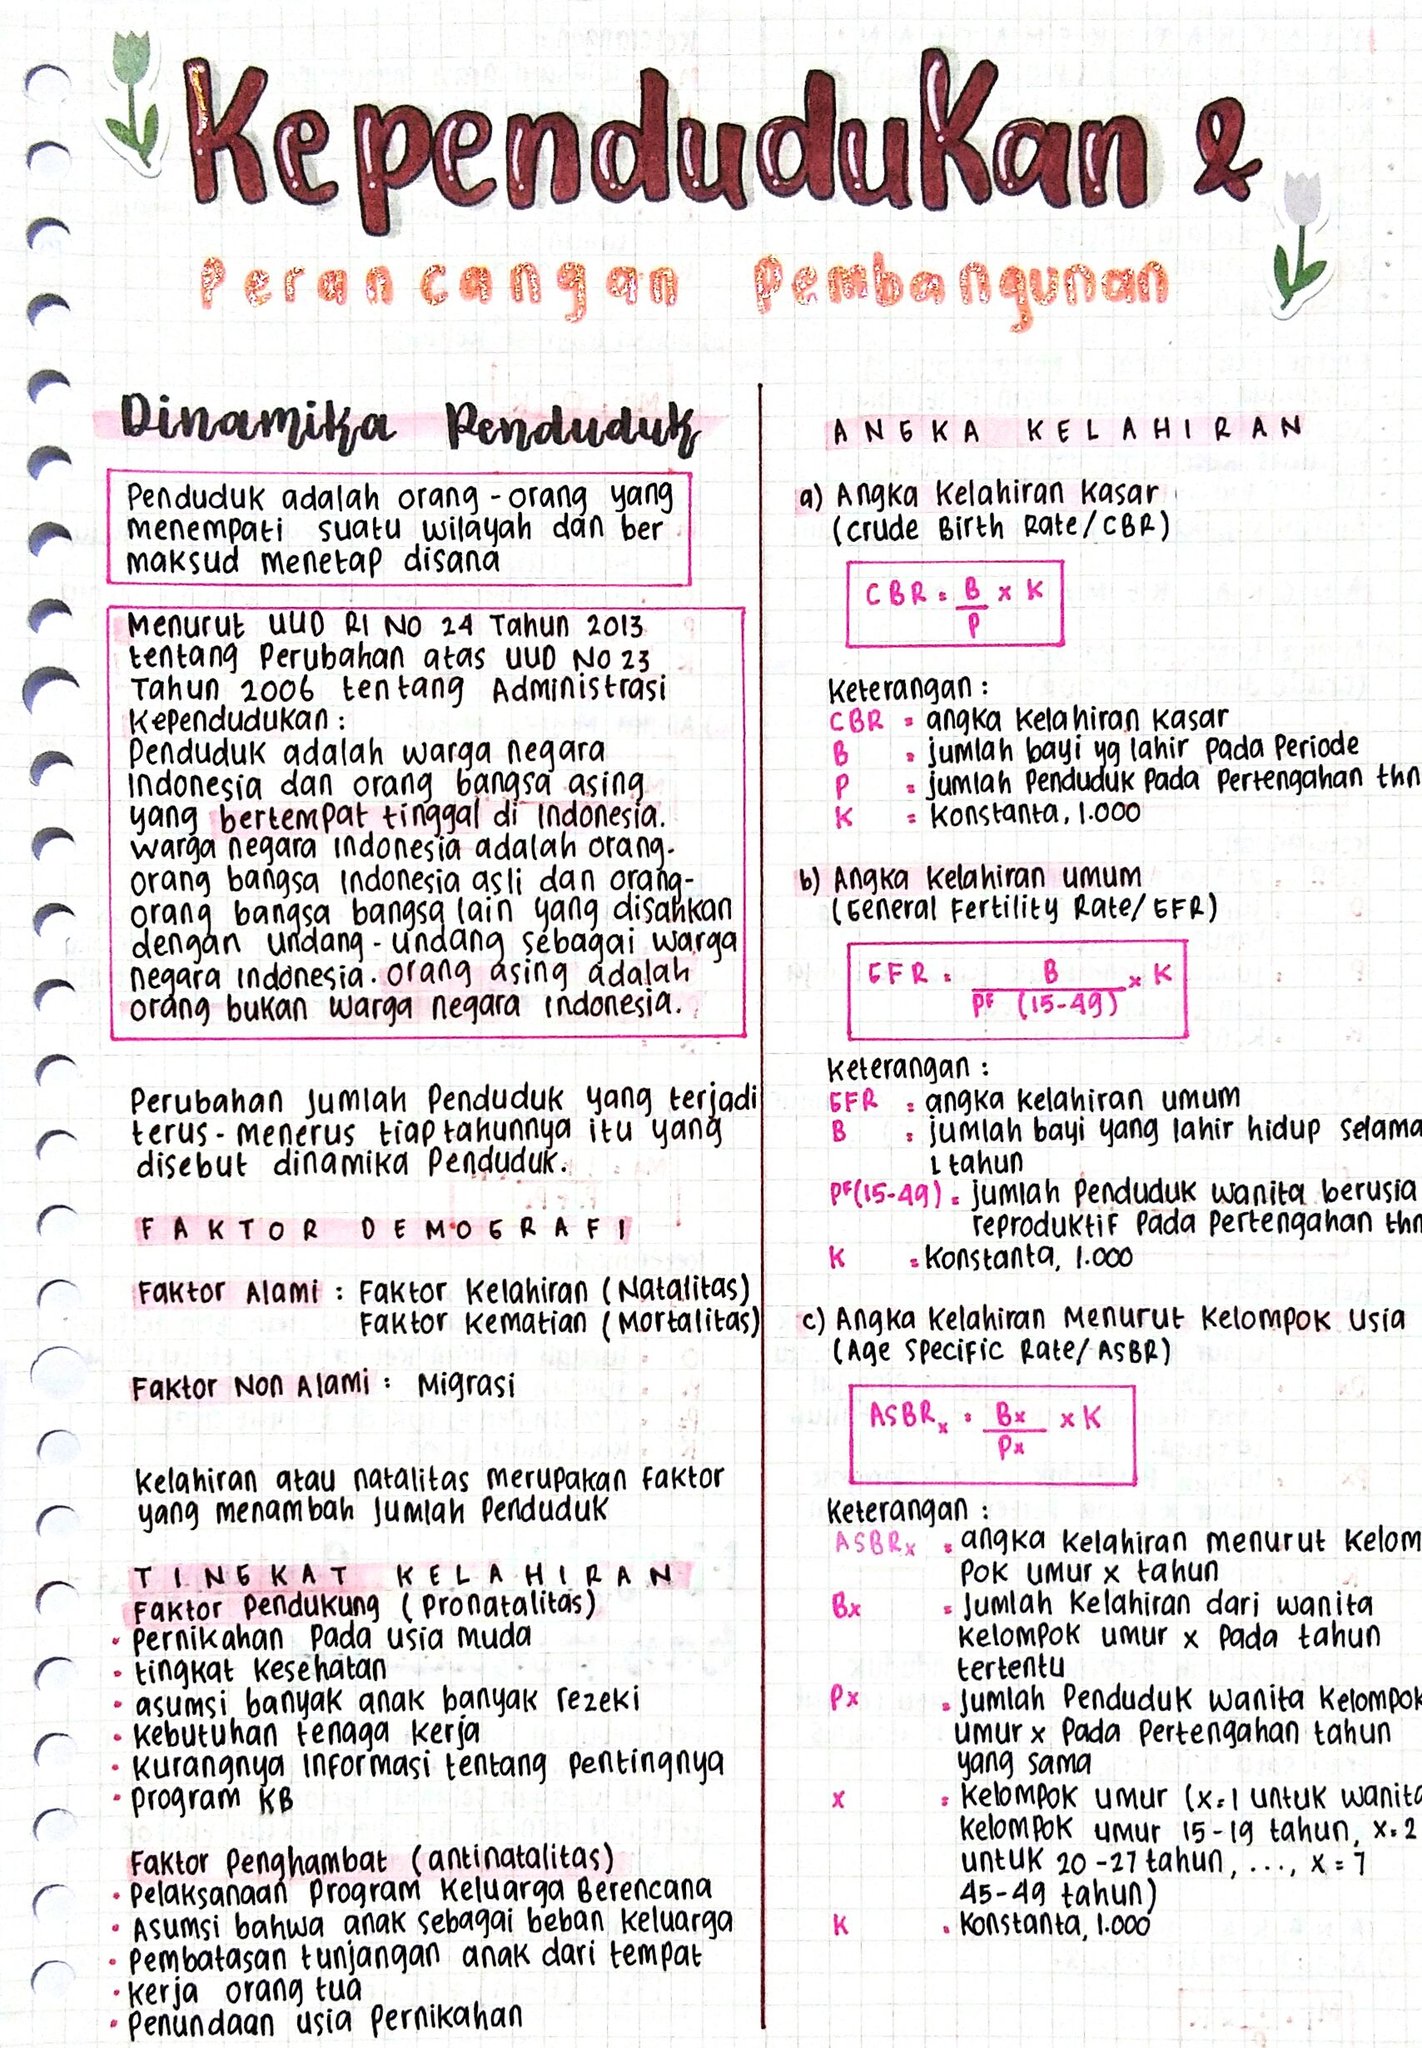 Kependudukan &
Perancangan Pembangunan
Dinamika Penduduk
Penduduk adalah orang-orang yang
menempati suatu wilayah dan ber
maksud menetap disana
Menurut UUD RI NO 24 Tahun 2013
tentang Perubahan atas UUD NO 23
Tahun 2006 tentang Administrasi
Kependudukan :
Penduduk adalah warga negara
Indonesia dan orang bangsa asing
yang bertempat tinggal di Indonesia.
Warga negara Indonesia adalah orang-
orang bangsa Indonesia asli dan orang-
orang bangsa bangsa lain yang disahkan
dengan undang-undang sebagai warga
negara Indonesia. Orang asing adalah
orang bukan warga negara Indonesia.
Perubahan Jumlah Penduduk yang terjadi
terus-menerus tiap tahunnya itu yang
disebut dinamika Penduduk.
FAKTOR DEMOGRAFI
Faktor Alami : Faktor Kelahiran (Natalitas)
Faktor Kematian (Mortalitas)
Faktor Non Alami : Migrasi
Kelahiran atau natalitas merupakan Faktor
yang menambah Jumlah Penduduk
TINGKAT KELAHIRAN
Faktor Pendukung (Pronatalitas)
• Pernikahan Pada usia muda
• tingkat Kesehatan
• asumsi banyak anak banyak rezeki
• Kebutuhan tenaga Kerja
• Kurangnya Informasi tentang Pentingnya
• Program KB
Faktor Penghambat (antinatalitas)
• Pelaksanaan Program Keluarga Berencana
• Asumsi bahwa anak sebagai beban Keluarga
• Pembatasan tunjangan anak dari tempat
• Kerja orang tua
• Penundaan usia Pernikahan
ANGKA KELAHIRAN
a) Angka Kelahiran Kasar
(Crude Birth Rate/CBR)
CBR = B/P x K
Keterangan :
CBR = angka Kelahiran Kasar
B = jumlah bayi yg lahir Pada Periode
P = jumlah Penduduk Pada Pertengahan thn
K = Konstanta, 1.000
b) Angka Kelahiran umum
(General Fertility Rate/GFR)
GFR = B/PF (15-49) x K
Keterangan :
GFR = angka Kelahiran umum
B = jumlah bayi yang lahir hidup selama
1 tahun
PF(15-49) = jumlah Penduduk wanita berusia
reproduktif Pada Pertengahan thn
K = Konstanta, 1.000
c) Angka Kelahiran Menurut Kelompok Usia
(Age Specific Rate/ASBR)
ASBRx = Bx/Px x K
Keterangan :
ASBRx = angka Kelahiran menurut Kelom
Pok umur x tahun
Bx = Jumlah Kelahiran dari wanita
Kelompok umur x Pada tahun
tertentu
Px = Jumlah Penduduk wanita Kelompok
umur x Pada Pertengahan tahun
yang sama
x = Kelompok umur (x=1 untuk wanita
Kelompok umur 15-19 tahun, x=2
untuk 20-27 tahun, ..., x=7
45-49 tahun)
K = Konstanta, 1.000